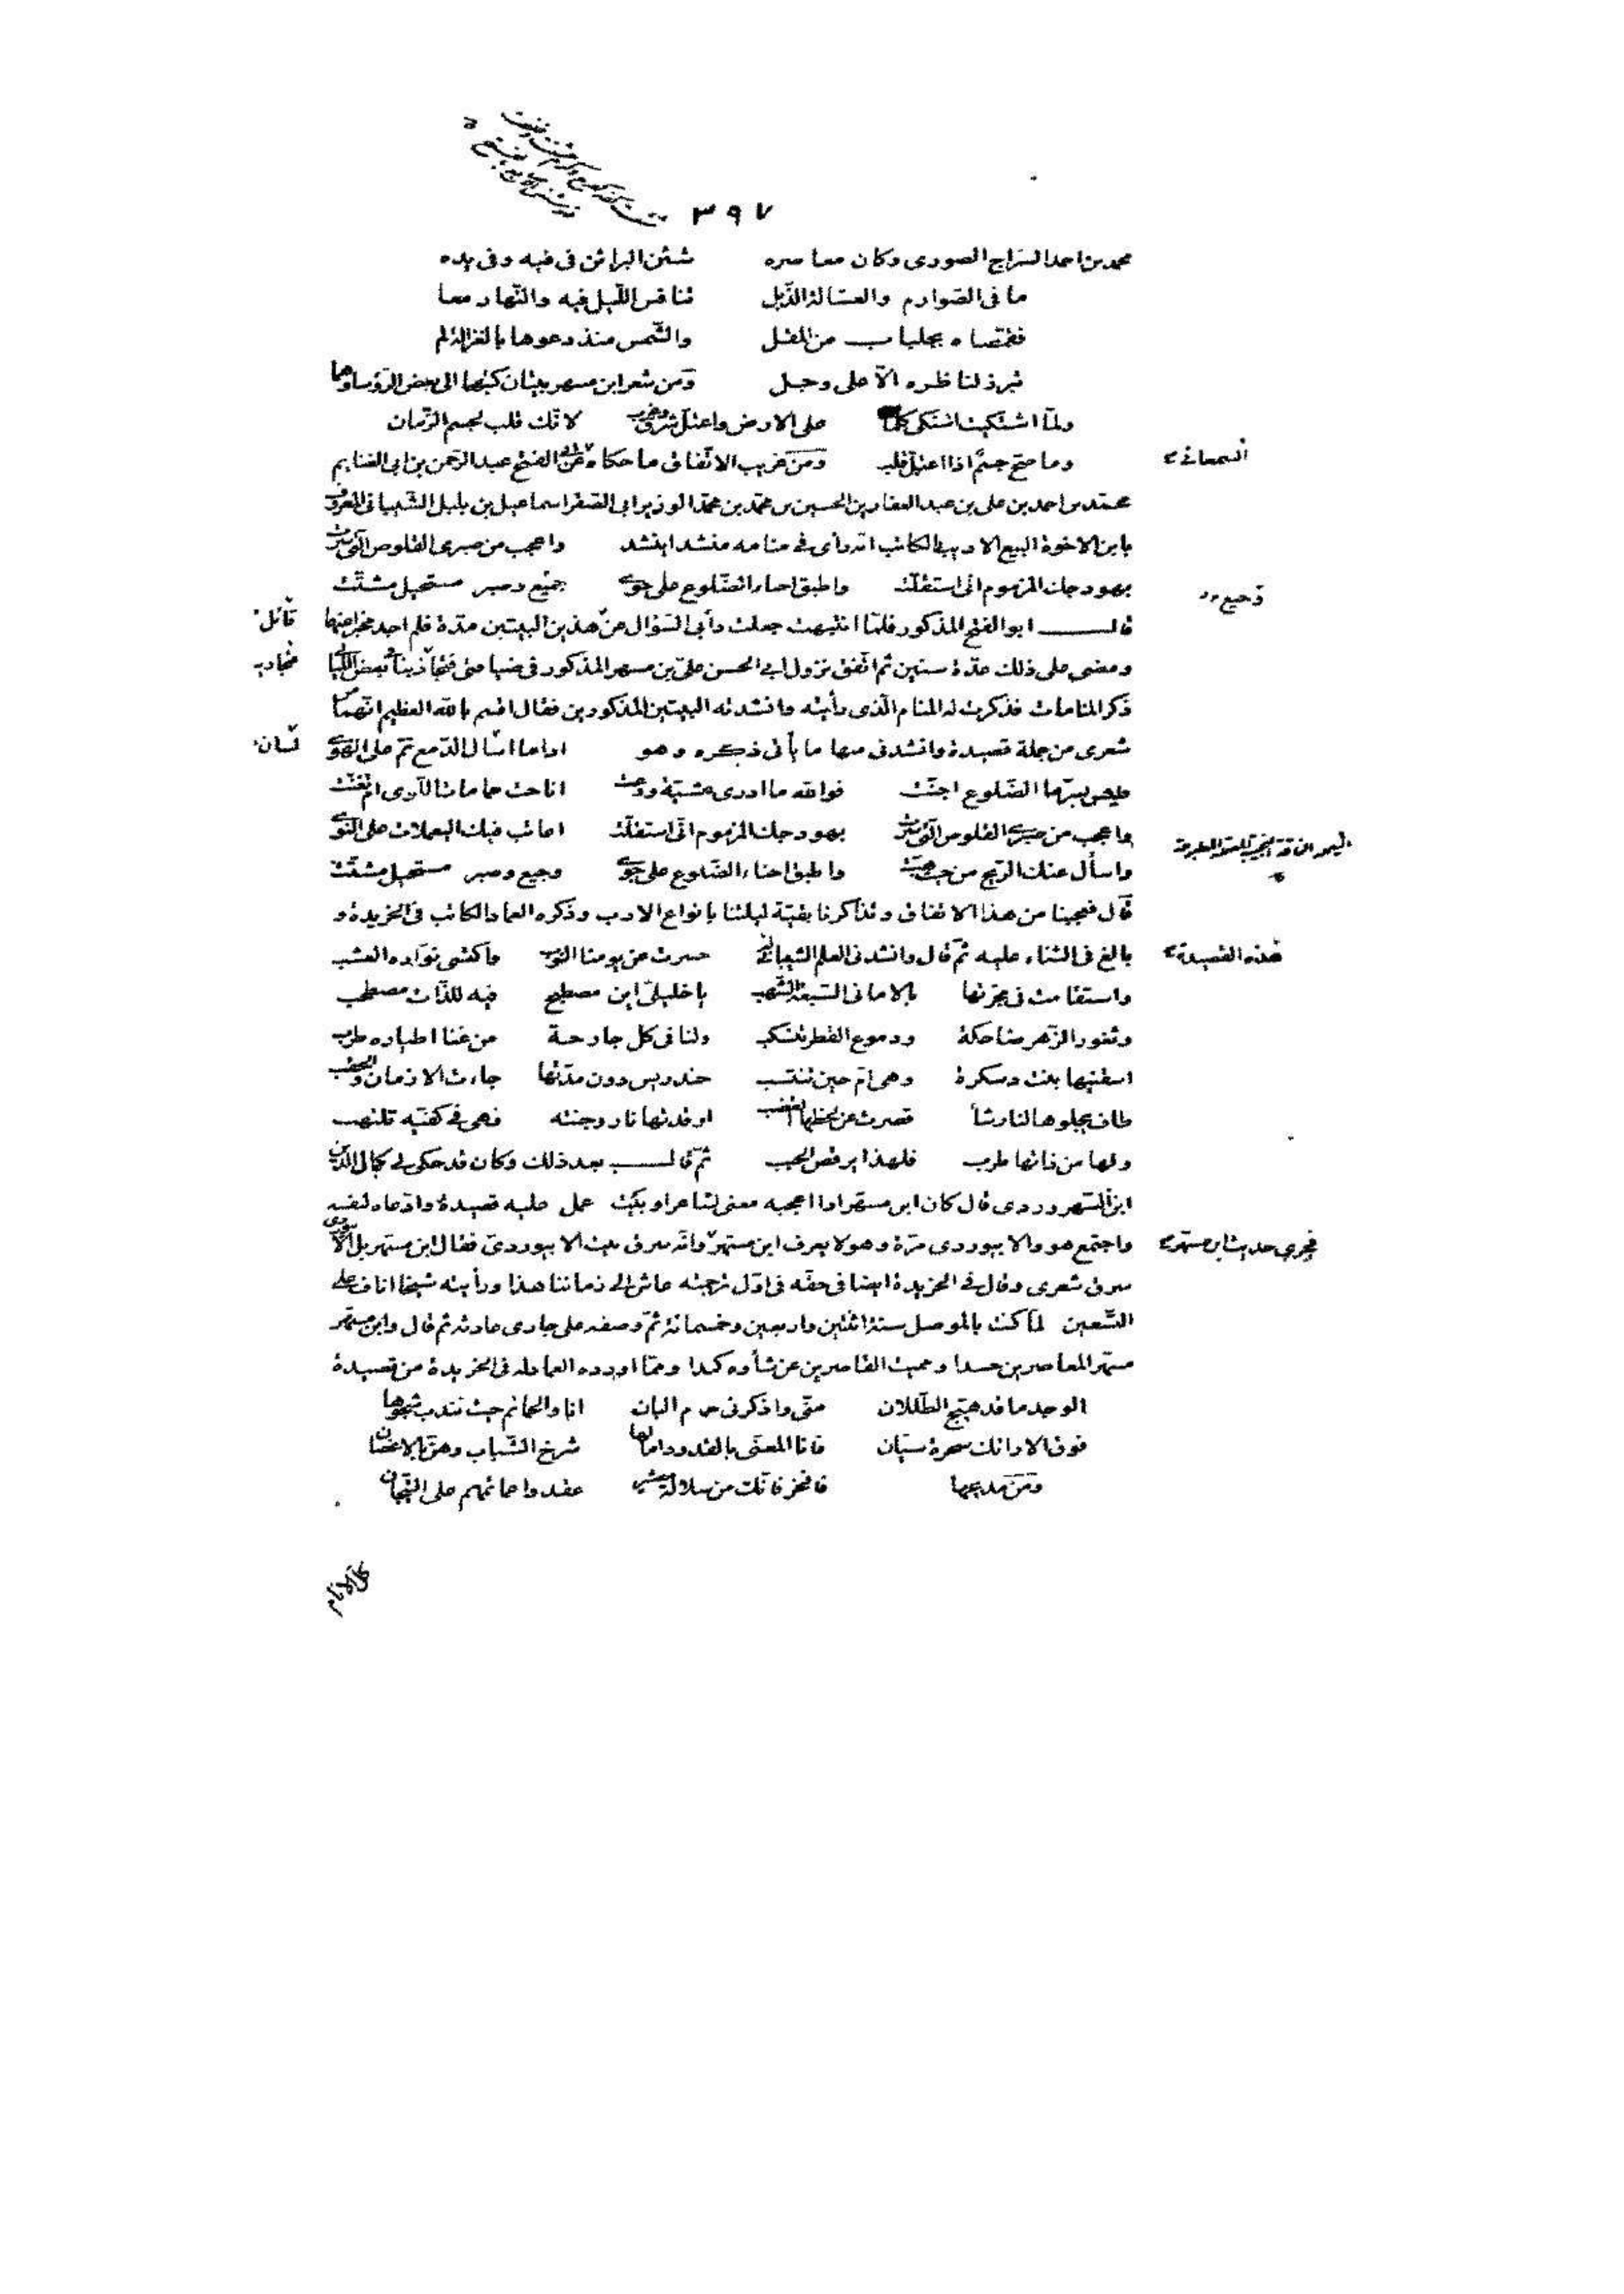 ٣٩٧
محمد بن احمد السراج الصورى وكان معاصره شثن البراثن فى فيه وفى يده
ما فى الصوارم والعسالة الذبل تنافس الليل فيه والنهار معا
فقمصاه بجلباب من المقل والشمس منذ دعوها بالغزالة لم
تبرز لناظره الا على وجل ومن شعر ابن مسهر بيتان كتبهما الى بعض الرؤساء وهما
ولما اشتكيت اشتكى كلما على الارض واعتل شرق وغرب لانك قلب لجسم الزمان
وما صح جسم اذا اعتل قلب ومن غريب الاتفاق ما حكاه عن ابى الفتح عبد الرحمن بن ابى الغنايم
السمعانى
محمد بن احمد بن على بن عبد الغفار بن الحسين بن محمد بن محمد الوزير ابى الصقر اسماعيل بن بلبل الشيبانى المعروف
بابن الاخوة البيع الاديب الكاتب انه رأى فى منامه منشدا ينشد واعجب من صبرى القلوص التى سرت
بهودجك المزموم انى استقلت واطبق احناء الضلوع على جوى جميع وصبر مستحيل مشتت
قال ابو الفتح المذكور فلما انتبهت جعلت دأبى السؤال عن هذين البيتين مدة فلم اجد مخبرا عنهما
قائل
ومضى على ذلك عدة سنين ثم اتفق نزول ابى الحسن على بن مسهر المذكور فى ضيافتى فتجاذبنا بعض الليالى
ذكر المنامات فذكرت له المنام الذى رأيته وانشدته البيتين المذكورين فقال اقسم بالله العظيم انهما من
شعرى من جملة قصيدة وانشدنى منها ما يأتى ذكره وهو اذا ما اسال الدمع نم على الهوى
لسان
فليس بسر ما الضلوع اجنت فوالله ما ادرى عشية ودعت اناحت حمامات اللوى ام تغنت
واعجب من صبرى القلوص التى سرت بهودجك المزموم انى استقلت اعاتب فيك اليعملات على النوى
واسأل عنك الريح من حيث هبت واطبق احناء الضلوع على جوى وجيع وصبر مستحيل مشتت
قال فعجبنا من هذا الاتفاق وتذاكرنا بقية ليلتنا بانواع الادب وذكره العماد الكاتب فى الخريدة و
بالغ فى الثناء عليه ثم قال وانشدنى العلم الشيبانى حسرت عن يومنا النوب واكتسى نواره العشب
هذه القصيدة
واستقامت فى مجرتها بالامانى السبعة الشهب يا خليلى اين مصطبح فيه للذات مصطحب
وثغور الزهر ضاحكة ودموع القطر تنسكب ولنا فى كل جارحة من غنا اطياره طرب
اسقنيها بنت دسكرة وهى ام حين تنتسب خندريس دون مدتها جاءت الازمان والحقب
طاف يجلوها لنا رشأ قصرت عن لحظها القضب اوقدتها نار وجنته فهى فى كفيه تلتهب
ولها من ذاتها طرب فلهذا يرقص الحبب ثم قال بعد ذلك وكان قد حكى لى كمال الدين
ابن السهروردى قال كان ابن مسهر اذا اعجبه معنى لشاعر او بيت عمل عليه قصيدة وادعاه لنفسه
واجتمع هو والابيوردى مرة وهو لا يعرف ابن مسهر وانه سرق بيت الابيوردى فقال ابن مسهر بل الابيوردى
فجرى حديث ابن مسهر
سرق شعرى وقال فى الخريدة ايضا فى حقه فى اول ترجمته عاش الى زماننا هذا ورأيته شيخا اناف على
التسعين لما كنت بالموصل سنة اثنتين واربعين وخمسمائة ثم وصفه على جارى عادته ثم قال وابن مسهر
مسهر المعاصرين حسدا ومميت القاصرين عن شأوه كمدا ومما اورده العماد له فى الخريدة من قصيدة
الوجد ما قد هيج الطللان منى واذكرنى حمام البان انا والحمائم حيث تندب شجوها
فوق الاراك سحرة سيان فانا المعنى بالقدود امالها شرخ الشباب وهن بالاغصان
ومن مديحها فافخر فانك من سلالة معشر عقدوا عمائمهم على التيجان
كل الانام